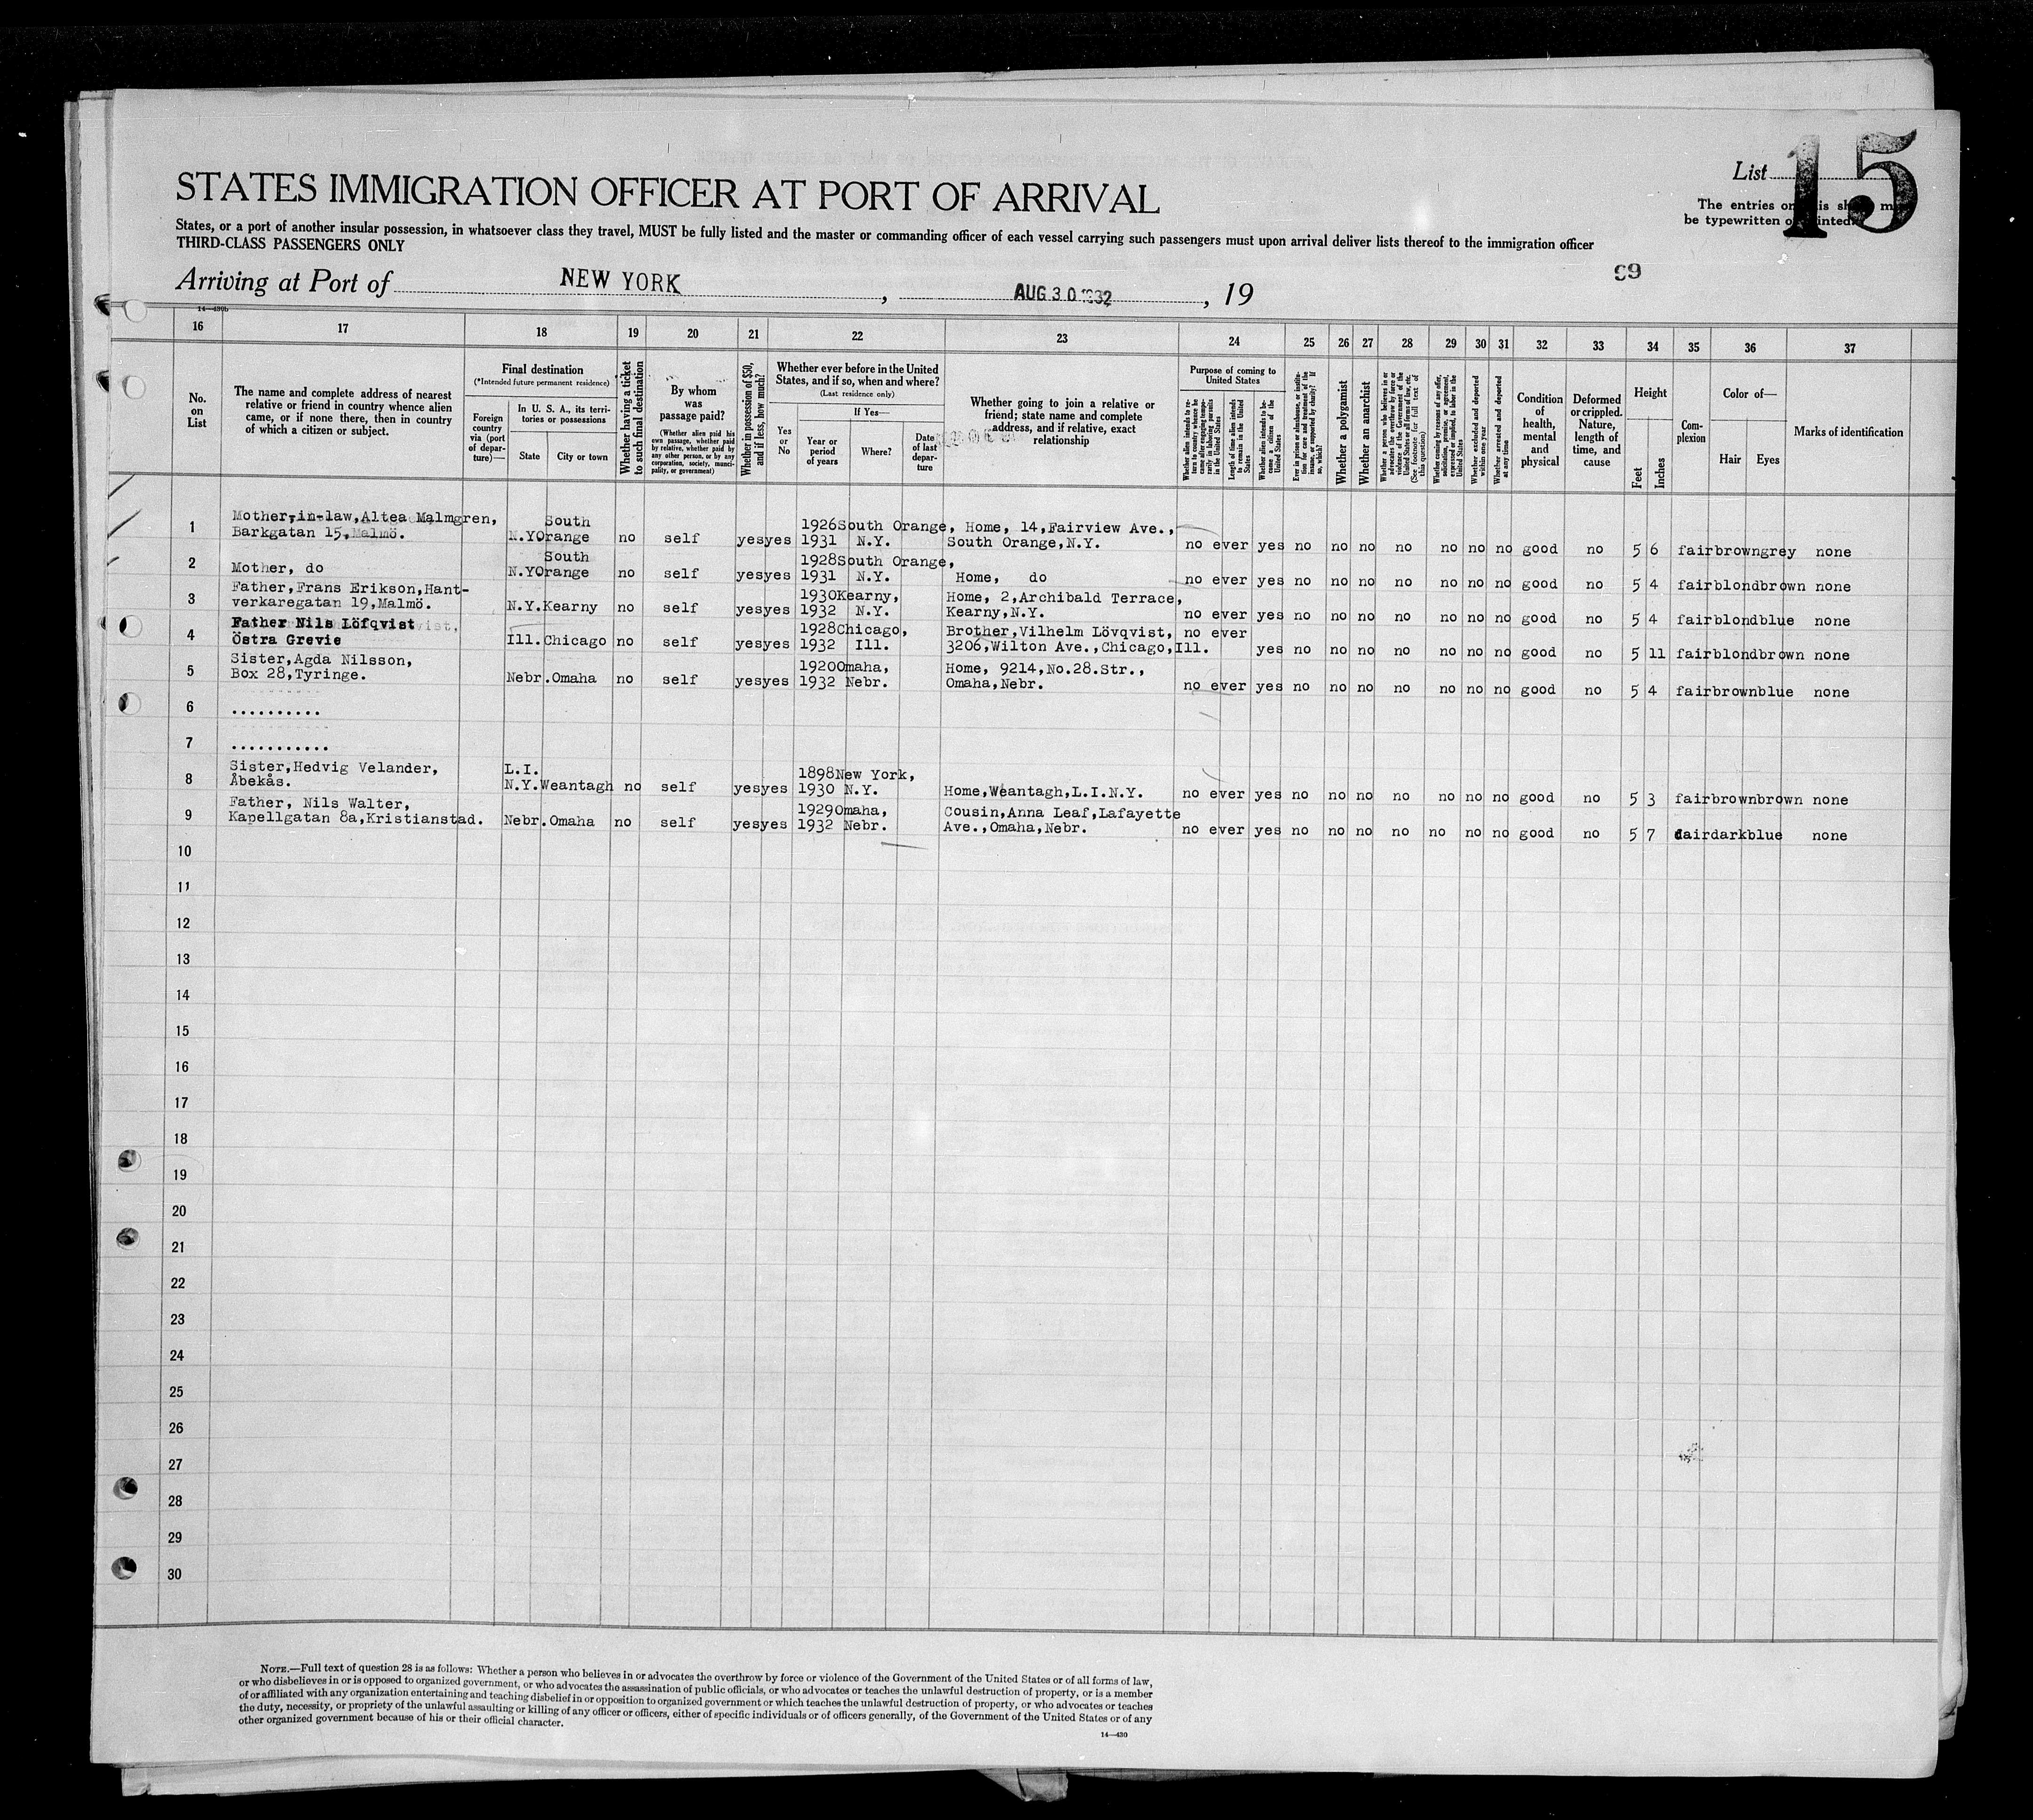 List 15
STATES IMMIGRATION OFFICER AT PORT OF ARRIVAL
The entries on this sheet must be typewritten or printed.
States, or a port of another insular possession, in whatsoever class they travel, MUST be fully listed and the master or commanding officer of each vessel carrying such passengers must upon arrival deliver lists thereof to the immigration officer
THIRD-CLASS PASSENGERS ONLY
99
Arriving at Port of NEW YORK, AUG 30 1932, 19
14—430b
16 17 18 19 20 21 22 23 24 25 26 27 28 29 30 31 32 33 34 35 36 37
No. on List
The name and complete address of nearest relative or friend in country whence alien came, or if none there, then in country of which a citizen or subject.
Final destination
(*Intended future permanent residence)
Foreign country via (port of departure)—
In U. S. A., its territories or possessions
State City or town
Whether having a ticket to such final destination
By whom was passage paid?
(Whether alien paid his own passage, whether paid by relative, whether paid by any other person, or by any corporation, society, municipality, or government)
Whether in possession of $50, and if less, how much?
Whether ever before in the United States, and if so, when and where?
(Last residence only)
Yes or No
If Yes—
Year or period of years
Where?
Date of last departure
Whether going to join a relative or friend; state name and complete address, and if relative, exact relationship
Purpose of coming to United States
Whether alien intends to return to country whence he came after engaging temporarily in laboring pursuits in the United States
Length of time alien intends to remain in the United States
Whether alien intends to become a citizen of the United States
Ever in prison or almshouse, or institution for care and treatment of the insane, or supported by charity? If so, which?
Whether a polygamist
Whether an anarchist
Whether a person who believes in or advocates the overthrow by force or violence of the Government of the United States or all forms of law, etc. (See footnote for full text of this question)
Whether coming by reasons of any offer, solicitation, promise, or agreement, expressed or implied, to labor in the United States
Whether excluded and deported within one year
Whether arrested and deported at any time
Condition of health, mental and physical
Deformed or crippled. Nature, length of time, and cause
Height
Feet Inches
Complexion
Color of—
Hair Eyes
Marks of identification
1 Mother,in-law,Altea Malmgren, South 1926South Orange, Home, 14,Fairview Ave.,
Barkgatan 15,Malmö. N.YOrange no self yesyes 1931 N.Y. South Orange,N.Y. no ever yes no no no no no no no good no 5 6 fairbrowngrey none
2 South 1928South Orange,
Mother, do N.YOrange no self yesyes 1931 N.Y. Home, do no ever yes no no no no no no no good no 5 4 fairblondbrown none
3 Father,Frans Erikson,Hant- 1930Kearny, Home, 2,Archibald Terrace,
verkaregatan 19,Malmö. N.Y.Kearny no self yesyes 1932 N.Y. Kearny,N.Y. no ever yes no no no no no no no good no 5 4 fairblondblue none
4 Father Nils Löfqvist 1928Chicago, Brother,Vilhelm Lövqvist, no ever
Östra Grevie Ill.Chicago no self yesyes 1932 Ill. 3206,Wilton Ave.,Chicago,Ill. yes no no no no no no no good no 5 11 fairblondbrown none
5 Sister,Agda Nilsson, 1920Omaha, Home, 9214,No.28.Str.,
Box 28,Tyringe. Nebr.Omaha no self yesyes 1932 Nebr. Omaha,Nebr. no ever yes no no no no no no no good no 5 4 fairbrownblue none
6 ..........
7 ...........
8 Sister,Hedvig Velander, L.I. 1898New York,
Åbekås. N.Y.Weantagh no self yesyes 1930 N.Y. Home,Weantagh,L.I.N.Y. no ever yes no no no no no no no good no 5 3 fairbrownbrown none
9 Father, Nils Walter, 1929Omaha, Cousin,Anna Leaf,Lafayette
Kapellgatan 8a,Kristianstad. Nebr.Omaha no self yesyes 1932 Nebr. Ave.,Omaha,Nebr. no ever yes no no no no no no no good no 5 7 fairdarkblue none
10
11
12
13
14
15
16
17
18
19
20
21
22
23
24
25
26
27
28
29
30
NOTE.—Full text of question 28 is as follows: Whether a person who believes in or advocates the overthrow by force or violence of the Government of the United States or of all forms of law,
or who disbelieves in or is opposed to organized government, or who advocates the assassination of public officials, or who advocates or teaches the unlawful destruction of property, or is a member
of or affiliated with any organization entertaining and teaching disbelief in or opposition to organized government or which teaches the unlawful destruction of property, or who advocates or teaches
the duty, necessity, or propriety of the unlawful assaulting or killing of any officer or officers, either of specific individuals or of officers generally, of the Government of the United States or of any
other organized government because of his or their official character.
14—430